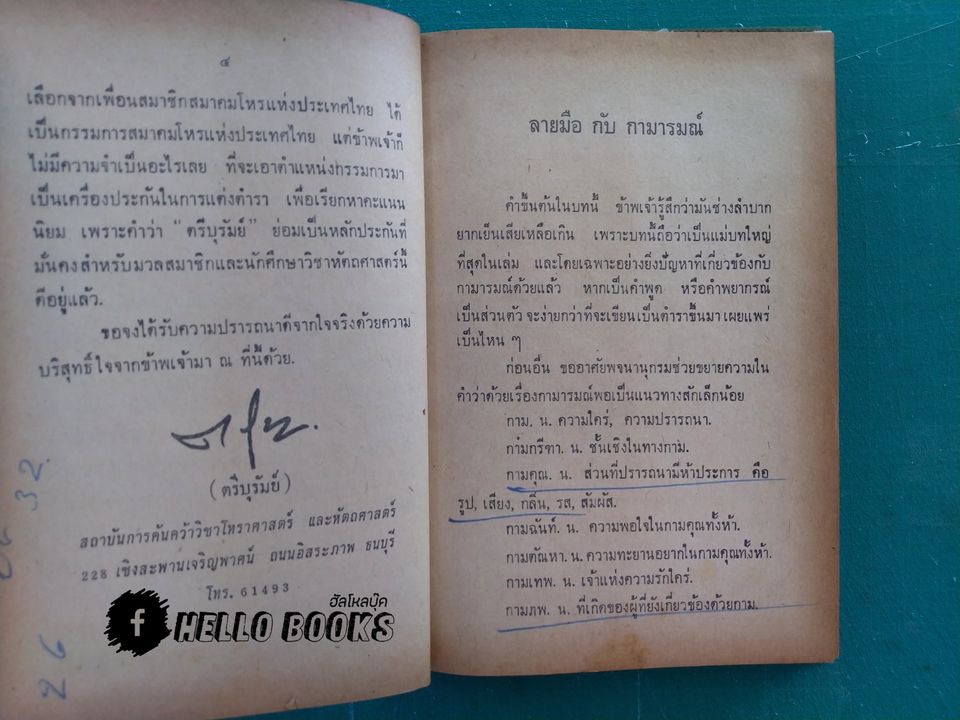 ๔
เลือกจากเพื่อนสมาชิกสมาคมโหรแห่งประเทศไทย ได้
เป็นกรรมการสมาคมโหรแห่งประเทศไทย แต่ข้าพเจ้าก็
ไม่มีความจำเป็นอะไรเลย ที่จะเอาตำแหน่งกรรมการมา
เป็นเครื่องประกันในการแต่งตำรา เพื่อเรียกหาคะแนน
นิยม เพราะคำว่า "ตรีบุรัมย์" ย่อมเป็นหลักประกันที่
มั่นคงสำหรับมวลสมาชิกและนักศึกษาวิชาหัตถศาสตร์นี้
ดีอยู่แล้ว.
ขอจงได้รับความปรารถนาดีจากใจจริงด้วยความ
บริสุทธิ์ใจจากข้าพเจ้ามา ณ ที่นี้ด้วย.
(ตรีบุรัมย์)
สถาบันการค้นคว้าวิชาโหราศาสตร์ และหัตถศาสตร์
228 เชิงสะพานเจริญพาศน์ ถนนอิสระภาพ ธนบุรี
โทร. 61493
ฮัลโหลบุ๊ค
f HELLO BOOKS
32
26
ลายมือ กับ กามารมณ์
คำขึ้นต้นในบทนี้ ข้าพเจ้ารู้สึกว่ามันช่างลำบาก
ยากเย็นเสียเหลือเกิน เพราะบทนี้ถือว่าเป็นแม่บทใหญ่
ที่สุดในเล่ม และโดยเฉพาะอย่างยิ่งปัญหาที่เกี่ยวข้องกับ
กามารมณ์ด้วยแล้ว หากเป็นคำพูด หรือคำพยากรณ์
เป็นส่วนตัว จะง่ายกว่าที่จะเขียนเป็นตำราขึ้นมาเผยแพร่
เป็นไหน ๆ
ก่อนอื่น ขออาศัยพจนานุกรมช่วยขยายความใน
คำว่าด้วยเรื่องกามารมณ์พอเป็นแนวทางสักเล็กน้อย
กาม. น. ความใคร่, ความปรารถนา.
กามกรีฑา. น. ชั้นเชิงในทางกาม.
กามคุณ. น. ส่วนที่ปรารถนามีห้าประการ คือ
รูป, เสียง, กลิ่น, รส, สัมผัส.
กามฉันท์. น. ความพอใจในกามคุณทั้งห้า.
กามตัณหา. น. ความทะยานอยากในกามคุณทั้งห้า.
กามเทพ. น. เจ้าแห่งความรักใคร่.
กามภพ. น. ที่เกิดของผู้ที่ยังเกี่ยวข้องด้วยกาม.